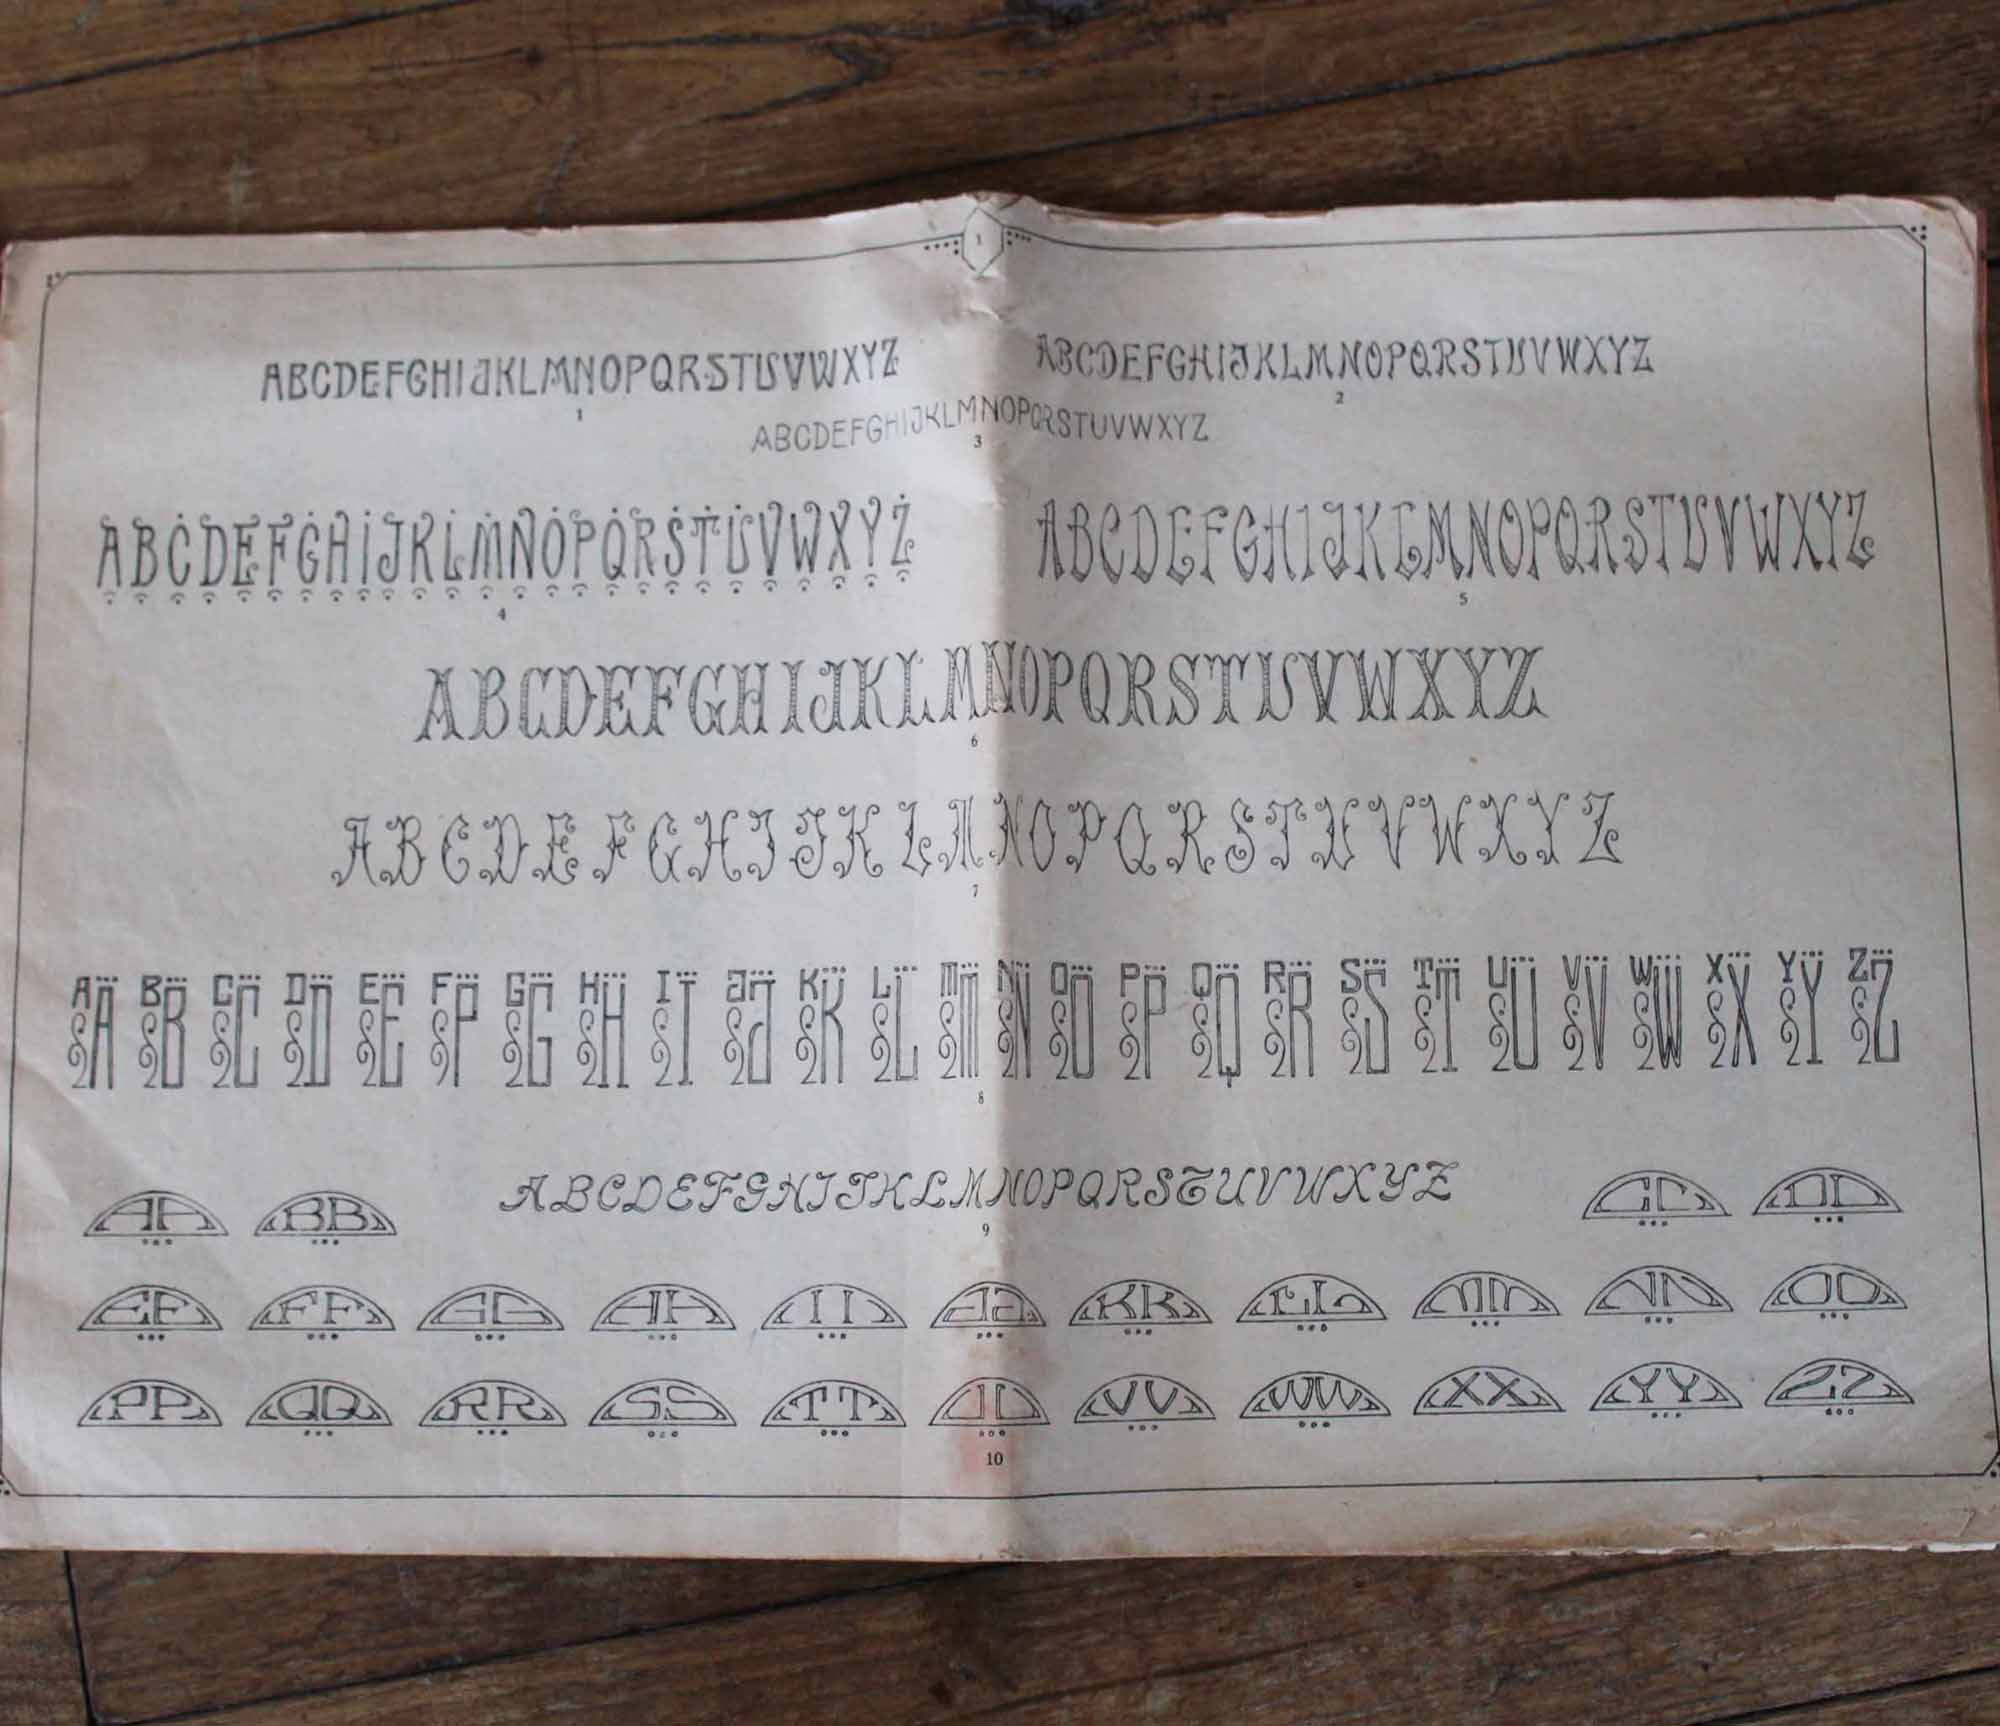 1
ABCDEFGHIJKLMNOPQRSTUVWXYZ
1
ABCDEFGHIJKLMNOPQRSTUVWXYZ
2
ABCDEFGHIJKLMNOPQRSTUVWXYZ
3
ABCDEFGHIJKLMNOPQRSTUVWXYZ
4
ABCDEFGHIJKLMNOPQRSTUVWXYZ
5
ABCDEFGHIJKLMNOPQRSTUVWXYZ
6
ABCDEFGHIJKLMNOPQRSTUVWXYZ
7
AA BB CC DD EE FF GG HH II JJ KK LL MM NN OO PP QQ RR SS TT UU VV WW XX YY ZZ
8
ABCDEFGHIJKLMNOPQRSTUVWXYZ
9
AA BB CC DD
EE FF GG HH II JJ KK LL MM NN OO
PP QQ RR SS TT UU VV WW XX YY ZZ
10